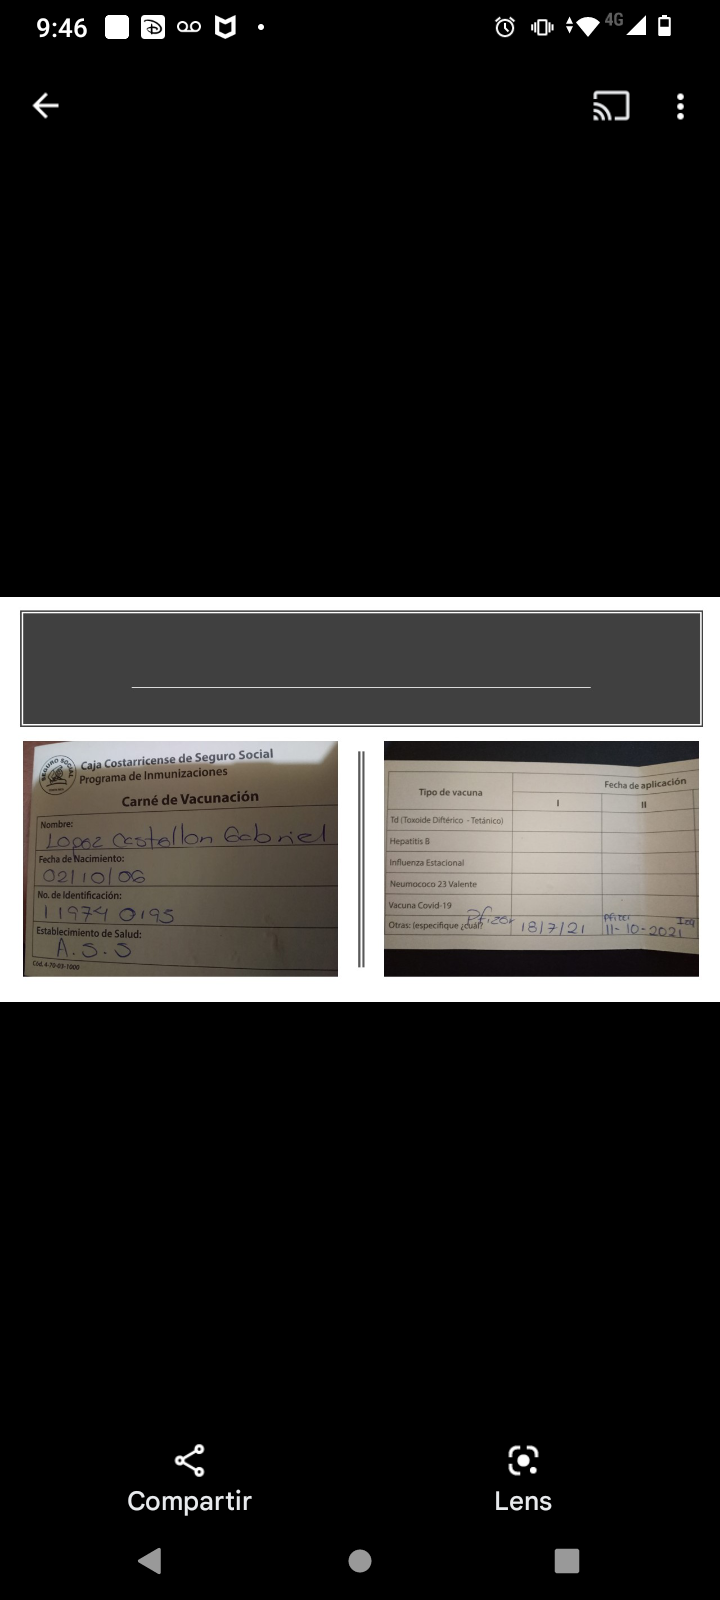 9:46
4G
SEGURO SOCIAL
Caja Costarricense de Seguro Social
Programa de Inmunizaciones
Carné de Vacunación
Nombre:
Lopez Castellon Gabriel
Fecha de Nacimiento:
02/10/06
No. de Identificación:
11974 0195
Establecimiento de Salud:
A.S.S
Cód. 4-70-03-1000
Tipo de vacuna
Fecha de aplicación
I
II
Td (Toxoide Diftérico - Tetánico)
Hepatitis B
Influenza Estacional
Neumococo 23 Valente
Vacuna Covid-19
Otras: (especifique ¿cuál? Pfizer 18/7/21 11-10-2021
Compartir
Lens